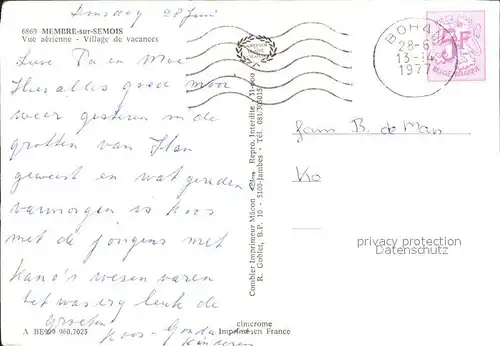 Dinsdag 28 Juni
6869 MEMBRE-sur-SEMOIS
Vue aérienne - Village de vacances
Lieve Pa en Moe
Hier alles goed mooi
weer gisteren in de
grotten van Han
geweest en wat gereden
vanmorgen is Koos
met de jongens met
kano's wesen varen
het was erg leuk de
Groeten
Koos - Gonda
Kinderen
A BE099 960.7025
cimcrome
Imprimé en France
Combier Imprimeur Mâcon Repro. Interdite - 51-600
R. Goblet, B.P. 10 - 5100-Jambes - Tél. 081/305015
BOHAN
28-6
13-14
1977
5F
BELGIE-BELGIQUE
Fam B. de Man
privacy protection
Datenschutz